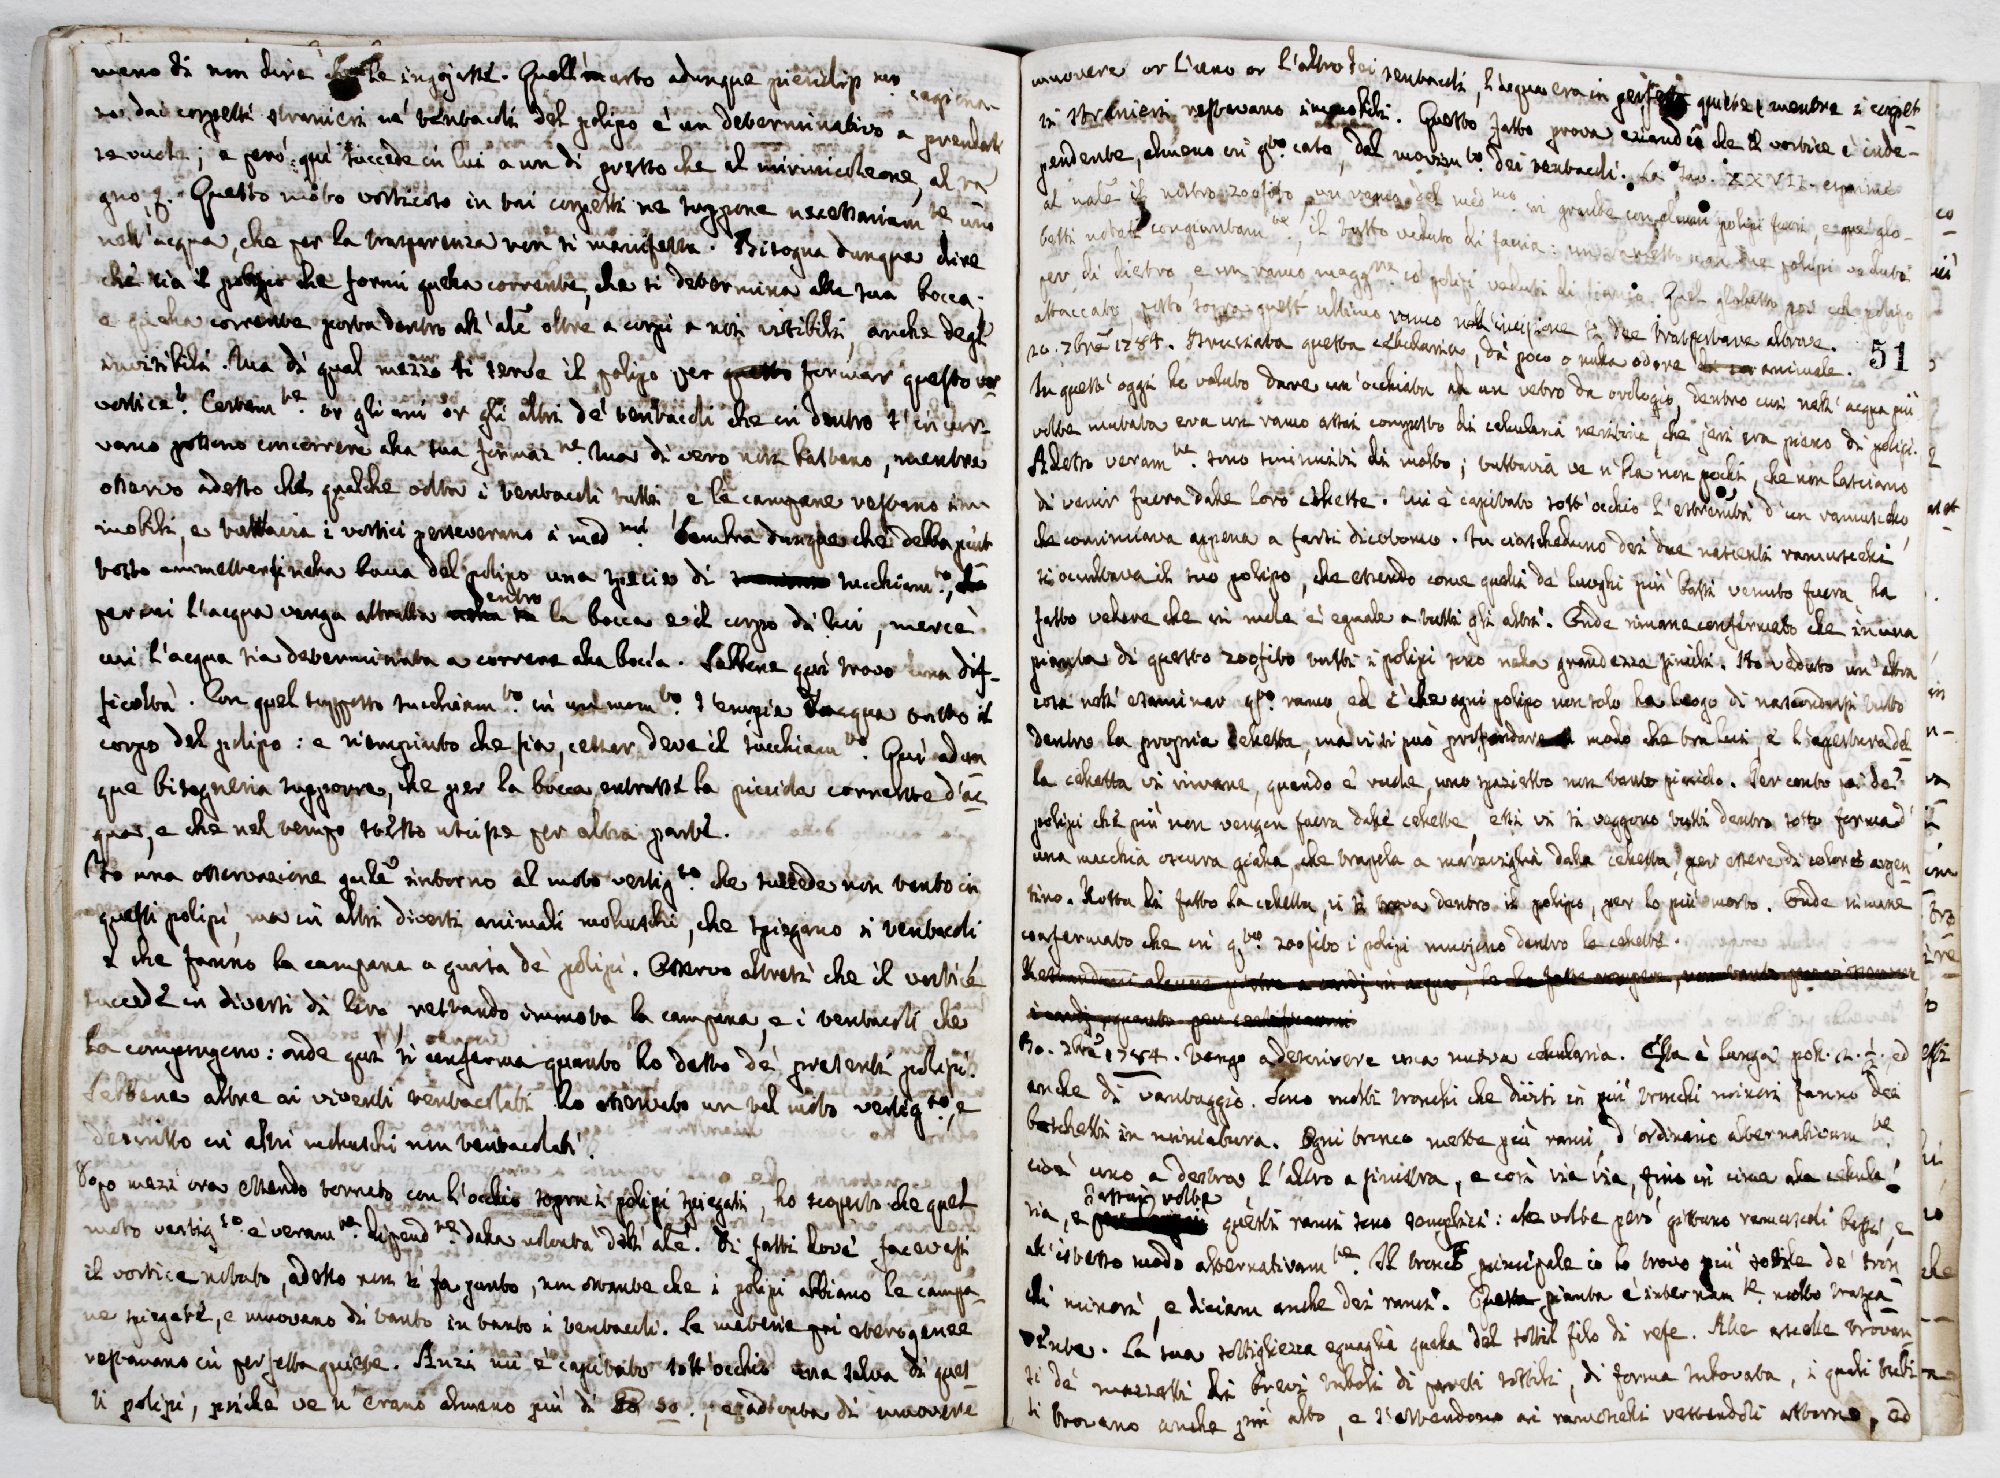 meno di non dire che le ingojasse. Quell'urto adunque picciolis.mo cagiona-
to dai corpetti stranieri ne' tentacoli del polipo è un determinativo a prendersi
se vuole; e però qui succede in lui a un di presso che al mirmicoleone, al ra-
gno, &. Questo moto vorticoso in tai corpetti ne suppone necessariam.te uno
nell'acqua, che per la trasparenza non si manifesta. Bisogna dunque dire
che sia il polipo che formi quella corrente, che si determina alla sua bocca.
e quella corrente porta dentro all'ale oltre a corpi a noi visibili, anche degl'
invisibili. Ma di qual mezzo si serve il polipo per formar questo vor-
vortice? Certam.te or gli uni or gli altri de' tentacoli che in dentro s'incur-
vano possono concorrere alla sua formaz.ne. Ma di vero non bastano, mentre
osservo adesso che qualche volta i tentacoli tutti, e le campane restano im-
mobili, e tuttavia i vortici perseverano i med.mi. Sembra dunque che debba piut-
tosto ammettersi nella bocca del polipo una specie di succhiam.to,
per cui l'acqua venga attratta dentro la bocca e il corpo di lui, mercè
cui l'acqua sia determinata a correre alla bocca. Sebbene qui trovo una dif-
ficoltà. Con quel supposto succhiam.to in un mom.to s'empia d'acqua tutto il
corpo del polipo: e riempiuto che sia, cessar deve il succhiam.to. Qui adun-
que bisogneria supporre, che per la bocca entrasse la picciola corrente d'ac-
qua, e che nel tempo stesso uscisse per altra parte.
Fo una osservazione gnle intorno al moto vertig.so che succede non tanto in
questi polipi, ma in altri diversi animali molluschi, che spiegano i tentacoli
e che fanno la campana a guisa de' polipi. Osservo altresì che il vortice
succede in diversi di loro, restando immota la campana, e i tentacoli che
la compongono: onde qui si conferma quanto ho detto de' presenti polipi.
Sebbene altre ai viventi tentacolati ho osservato un tal moto vertig.so, e
descritto in altri molluschi non tentacolati.
Dopo mezz'ora essendo tornato con l'occhio sopra i polipi spiegati, ho scoperto che quel
moto vertig.so è veram.te dipend.te dalla volontà dell'ale. Di fatti dove facevasi
il vortice notato, adesso non si fa punto, non ostante che i polipi abbiano le campa-
ne spiegate, e muovano di tanto in tanto i tentacoli. Le materie poi eterogenee
restavano in perfetta quiete. Anzi mi è capitato sott'occhio una selva di ques-
ti polipi, poichè ve n'erano almeno più di 50.; e ad onta di muovere
muovere or l'uno or l'altro dei tentacoli, l'acqua era in perfetta quiete, mentre i corpet-
ti stranieri restavano immobili. Questo fatto prova eziandio che il vortice è inde-
pendente, almeno in q.to caso, dal movim.to dei tentacoli. La Tav. XXVII. esprime
al nale il nostro zoofito, un ramo del med.mo in grande con alcuni polipi fuori, e que' glo-
betti notati congiuntam.te, il tutto veduto di faccia: un rametto con due polipi veduto
per di dietro, e un ramo magg.re co' polipi veduti di fianco. Quel globetto poi col polipo
attaccato, posto sopra quest'ultimo ramo nell'incisione si dee trasportare altrove.
20. 7bre 1784. Bruciata questa cellularia, dà poco o nulla odore animale.
51
In quest'oggi ho voluto dare un'occhiata ad un vetro da orologio, dentro cui nell'acqua più
volte mutata era un ramo assai composto di cellularia nericcia, che jeri era pieno di polipi.
Adesso veram.te sono sminuiti di molto; tuttavia ve n'ha non pochi, che non lasciano
di venir fuora dalle loro cellette. Mi è capitato sott'occhio l'estremità d'un ramuscello,
che cominciava appena a farsi dicotomo. In ciascheduno dei due nascenti ramuscelli
si occultava il suo polipo, che essendo come quelli de' luoghi più bassi venuto fuora ha
fatto vedere che in mole è eguale a tutti gli altri. Onde rimane confermato che in una
pianta di questo zoofito tutti i polipi sono nella grandezza simili. Ho veduto un'altra
cosa nell'esaminar q.to ramo, ed è che ogni polipo non solo ha luogo di nascondersi tutto
dentro la propria celletta, ma vi si può profondare modo che tra lui, e l'apertura del-
la celletta vi rimane, quando e' vuole, uno spazietto non tanto picciolo. Per conto poi de'
polipi che più non vengon fuora dalle cellette, essi vi si veggono tutti dentro sotto forma d'
una macchia oscura gialla, che traspela a maraviglia dalla celletta, per essere di colore argen-
tino. Rotta di fatto la celletta, vi si trova dentro il polipo, per lo più morto. Onde rimane
confermato che in q.sto zoofito i polipi muojono dentro le cellette.
20. 7bre 1784. Vengo a descrivere una nuova cellularia. Essa è lunga poll. 2. 1/2, ed
anche di vantaggio. Sono molti tronchi che divisi in più tronchi minori fanno dei
boschetti in miniatura. Ogni tronco mette più rami d'ordinario alternativam.te
cioè uno a destra, l'altro a sinistra, e così via via, fino in cima alla cellula-
ria, e assai volte questi rami sono semplici: alle volte però gittano ramuscoli bassi, e
all'istesso modo alternativam.te. Il tronco principale io lo trovo più sottile de' tron-
chi minori, e diciam anche dei rami. Questa pianta è internam.te molto traspa-
rente. La sua sottigliezza eguaglia quella del sottil filo di refe. Alle ascelle trovan-
si de' mazzetti di brevi tuboli di pareti sottili, di forma subovata, i quali tuboli
si trovano anche più alto, e s'estendono ai ramoscelli vestendoli attorno, ed